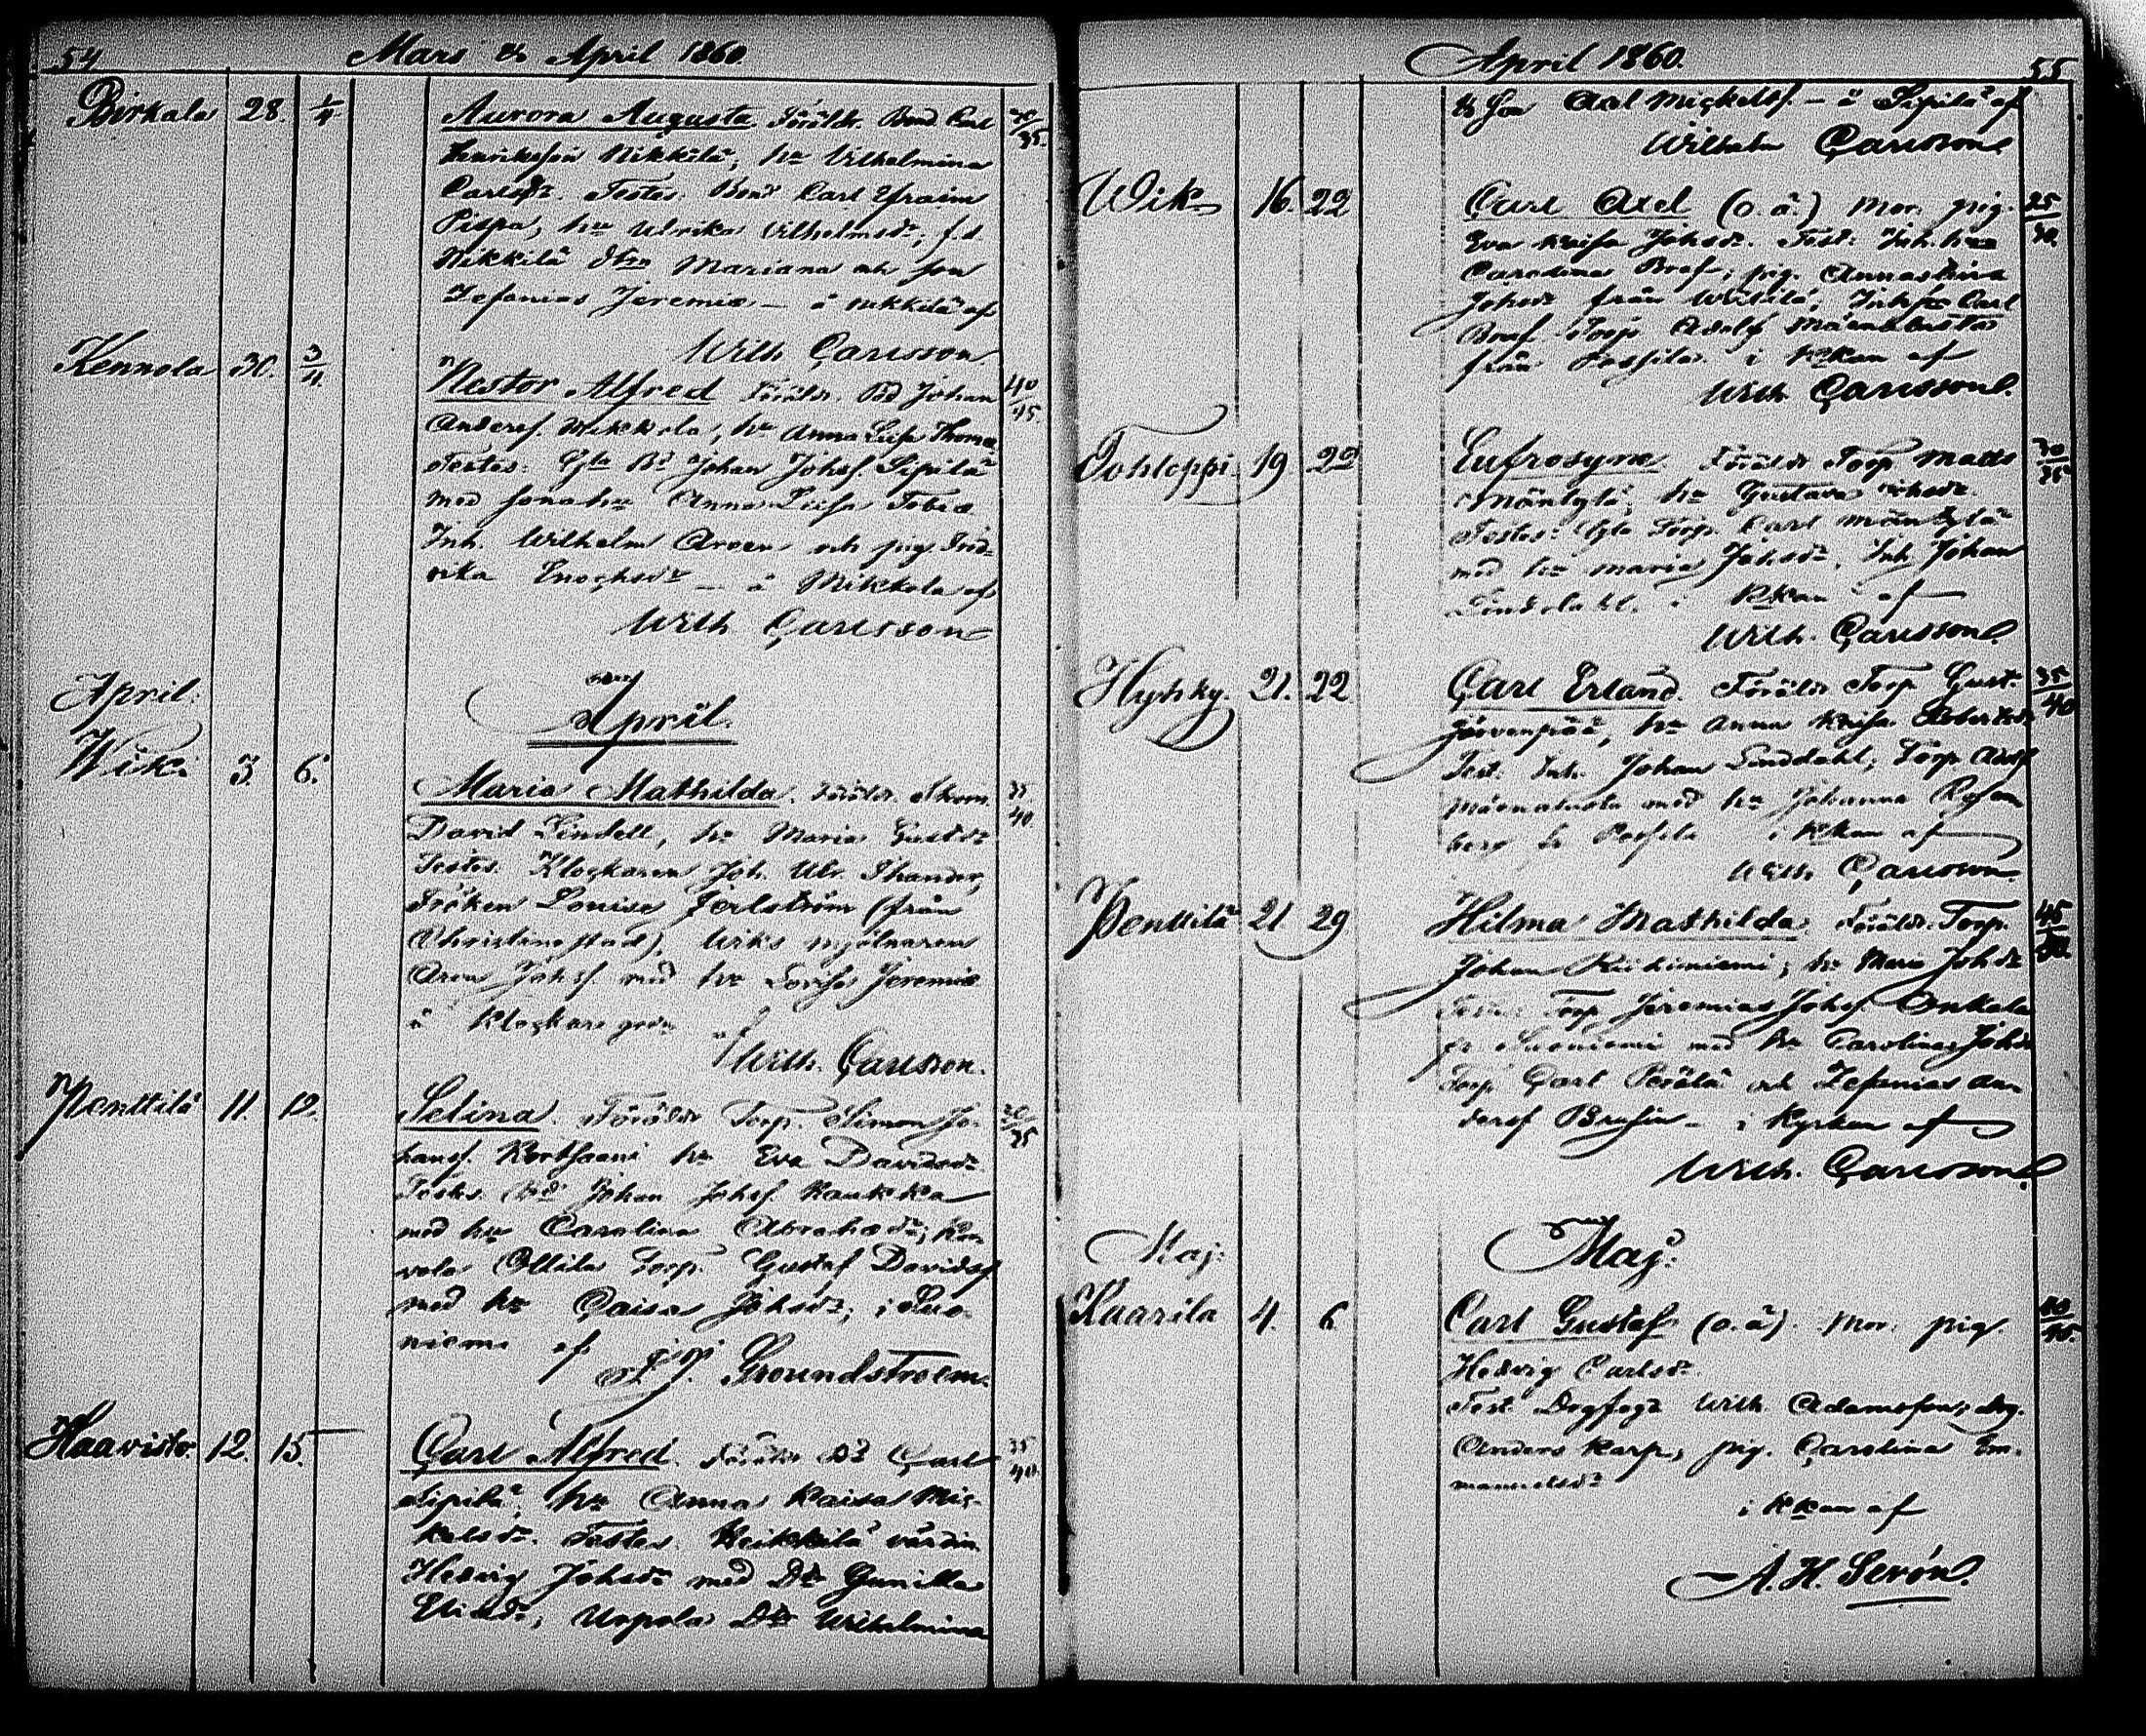 54 Mars & April 1860.
Birkala 28. 1/4 Aurora Augusta. Föräldr. Bond. Carl 30/35.
Henriksson Nikkilä, hu Vilhelmina
Carlsdr. Testes. Bond Carl Efraim
Pispa, hu Ulrika Vilhelmsdr, f.d.
Nikkilä Mariana och son
Zefanias Jeremiæ — å Nikkilä af
Wilh Carlsson
Kennola 30. 3/4 Nestor Alfred Föräldr. Johan 40/45.
Andersf. Mikkola, hu Anna Lisa Thomæ
Testes: Gla Bd Johan Johsf. Sipilä
med sonahu Anna Lisa Tobiæ
Inh. Wilhelm och pig. Fred-
rika Enochsdr — å Mikkola af
Wilh Carlsson
April. April.
Wik. 3. 6. Maria Mathilda. Föräldr. Skom. 35/40.
David Lindell, hu Maria Gustsdr
Testes. Klockaren Joh. Ulr. Thander,
Fröken Louise Jerlström (från
Christinestad), Wiks mjölnaren
Johsf. med hu Lovisa Jeremiæ
å Klockare af
Wilh. Carlsson.
Penttilä 11. 12. Selina. Föräldr Torp. Simon Jo- 30/35
hansf. hu Eva Davidsdr.
Testes. Bd Johan Johsf Kaukka
med hu Carolina Abrahsdr;
Ollila Torp. Gustaf Davidsf
med hu Caisa Johsdr; i Suo-
niemi af
Groundstroem.
Haavisto. 12. 15. Carl Alfred. Föräldr Bd Carl 35/40.
Sipilä, hu Anna Kaisa Mic-
kelsdr. Testes. Heikkilä värdin.
Hedvig Johsdr med Dtr Gunilla
Eliædr; Uopola Dtr Wilhelmina
April 1860. 55
& son Axel Mickelsf. — å Sipilä af
Wilhelm Carlsson
Wik 16. 22 Carl Axel (o. ä.) Mor. pig. 25/30.
Eva Kaisa Johsdr. Test: Inh. hu
Carolina Braf, pig. Annastina
Johsdr från Inh. Carl
Braf Torp Adolf
från Possila. i Kkan af
Wilh Carlsson.
Tohloppi 19. 22 Eufrosyne. Föräldr Torp Matts 30/35
Mäntylä, hu Gustava
Testes: Gla Torp. Carl Mäntylä
med hu Maria Johsdr, Inh Johan
Linddahl. i Kkan af
Wilh. Carlsson.
Hyhky. 21. 22 Carl Erland. Föräldr Torp Gust. 35/40
Järvenpää, hu Anna Kaisa
Test: Inh. Johan Linddahl; Torp Adolf
med hu Johanna Rosen
berg fr Possila i Kkan af
Wilh Carlsson.
Penttilä 21 29 Hilma Mathilda. Föräldr. Torp. 45/50.
Johan Riihiniemi; hu Maria Johsdr
Testes Torp Jeremias Johsf. Onkala
fr Suoniemi med hu Carolina Johsdr
Torp Carl Perälä och Zefanias An-
dersf — i Kyrkan af
Wilh. Carlsson.
Maj: Maj.
Kaarila 4. 6. Carl Gustaf (o.ä). Mor. pig. 40/45.
Hedvig Carlsdr.
Test. Wilh. Adamsson, drg.
Anders Karp, pig. Carolina Em-
manuelsdr
i Kkan af
A. H. Serón.